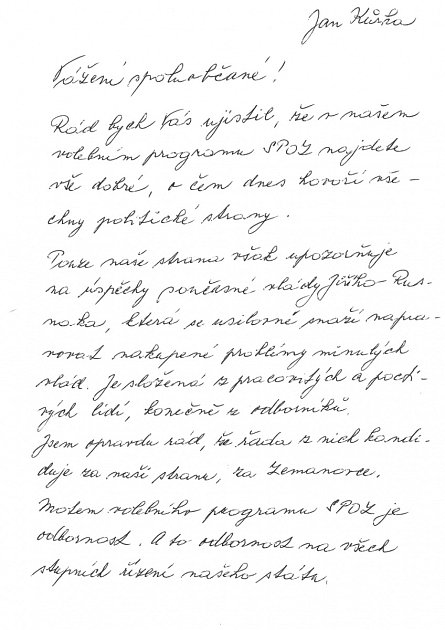 Jan Kůrka
Vážení spoluobčané!
Rád bych Vás ujistil, že v našem
volebním programu SPOZ najdete
vše dobré, o čem dnes hovoří vše-
chny politické strany.
Pouze naše strana však upozorňuje
na úspěchy současné vlády Jiřího Rus-
noka, která se usilovně snaží napra-
vovat nakupené problémy minulých
vlád. Je složená z pracovitých a pocti-
vých lidí, konečně z odborníků.
Jsem opravdu rád, že řada z nich kandi-
duje za naši stranu, za Zemanovce.
Motem volebního programu SPOZ je
odbornost. A to odbornost na všech
stupních řízení našeho státu.